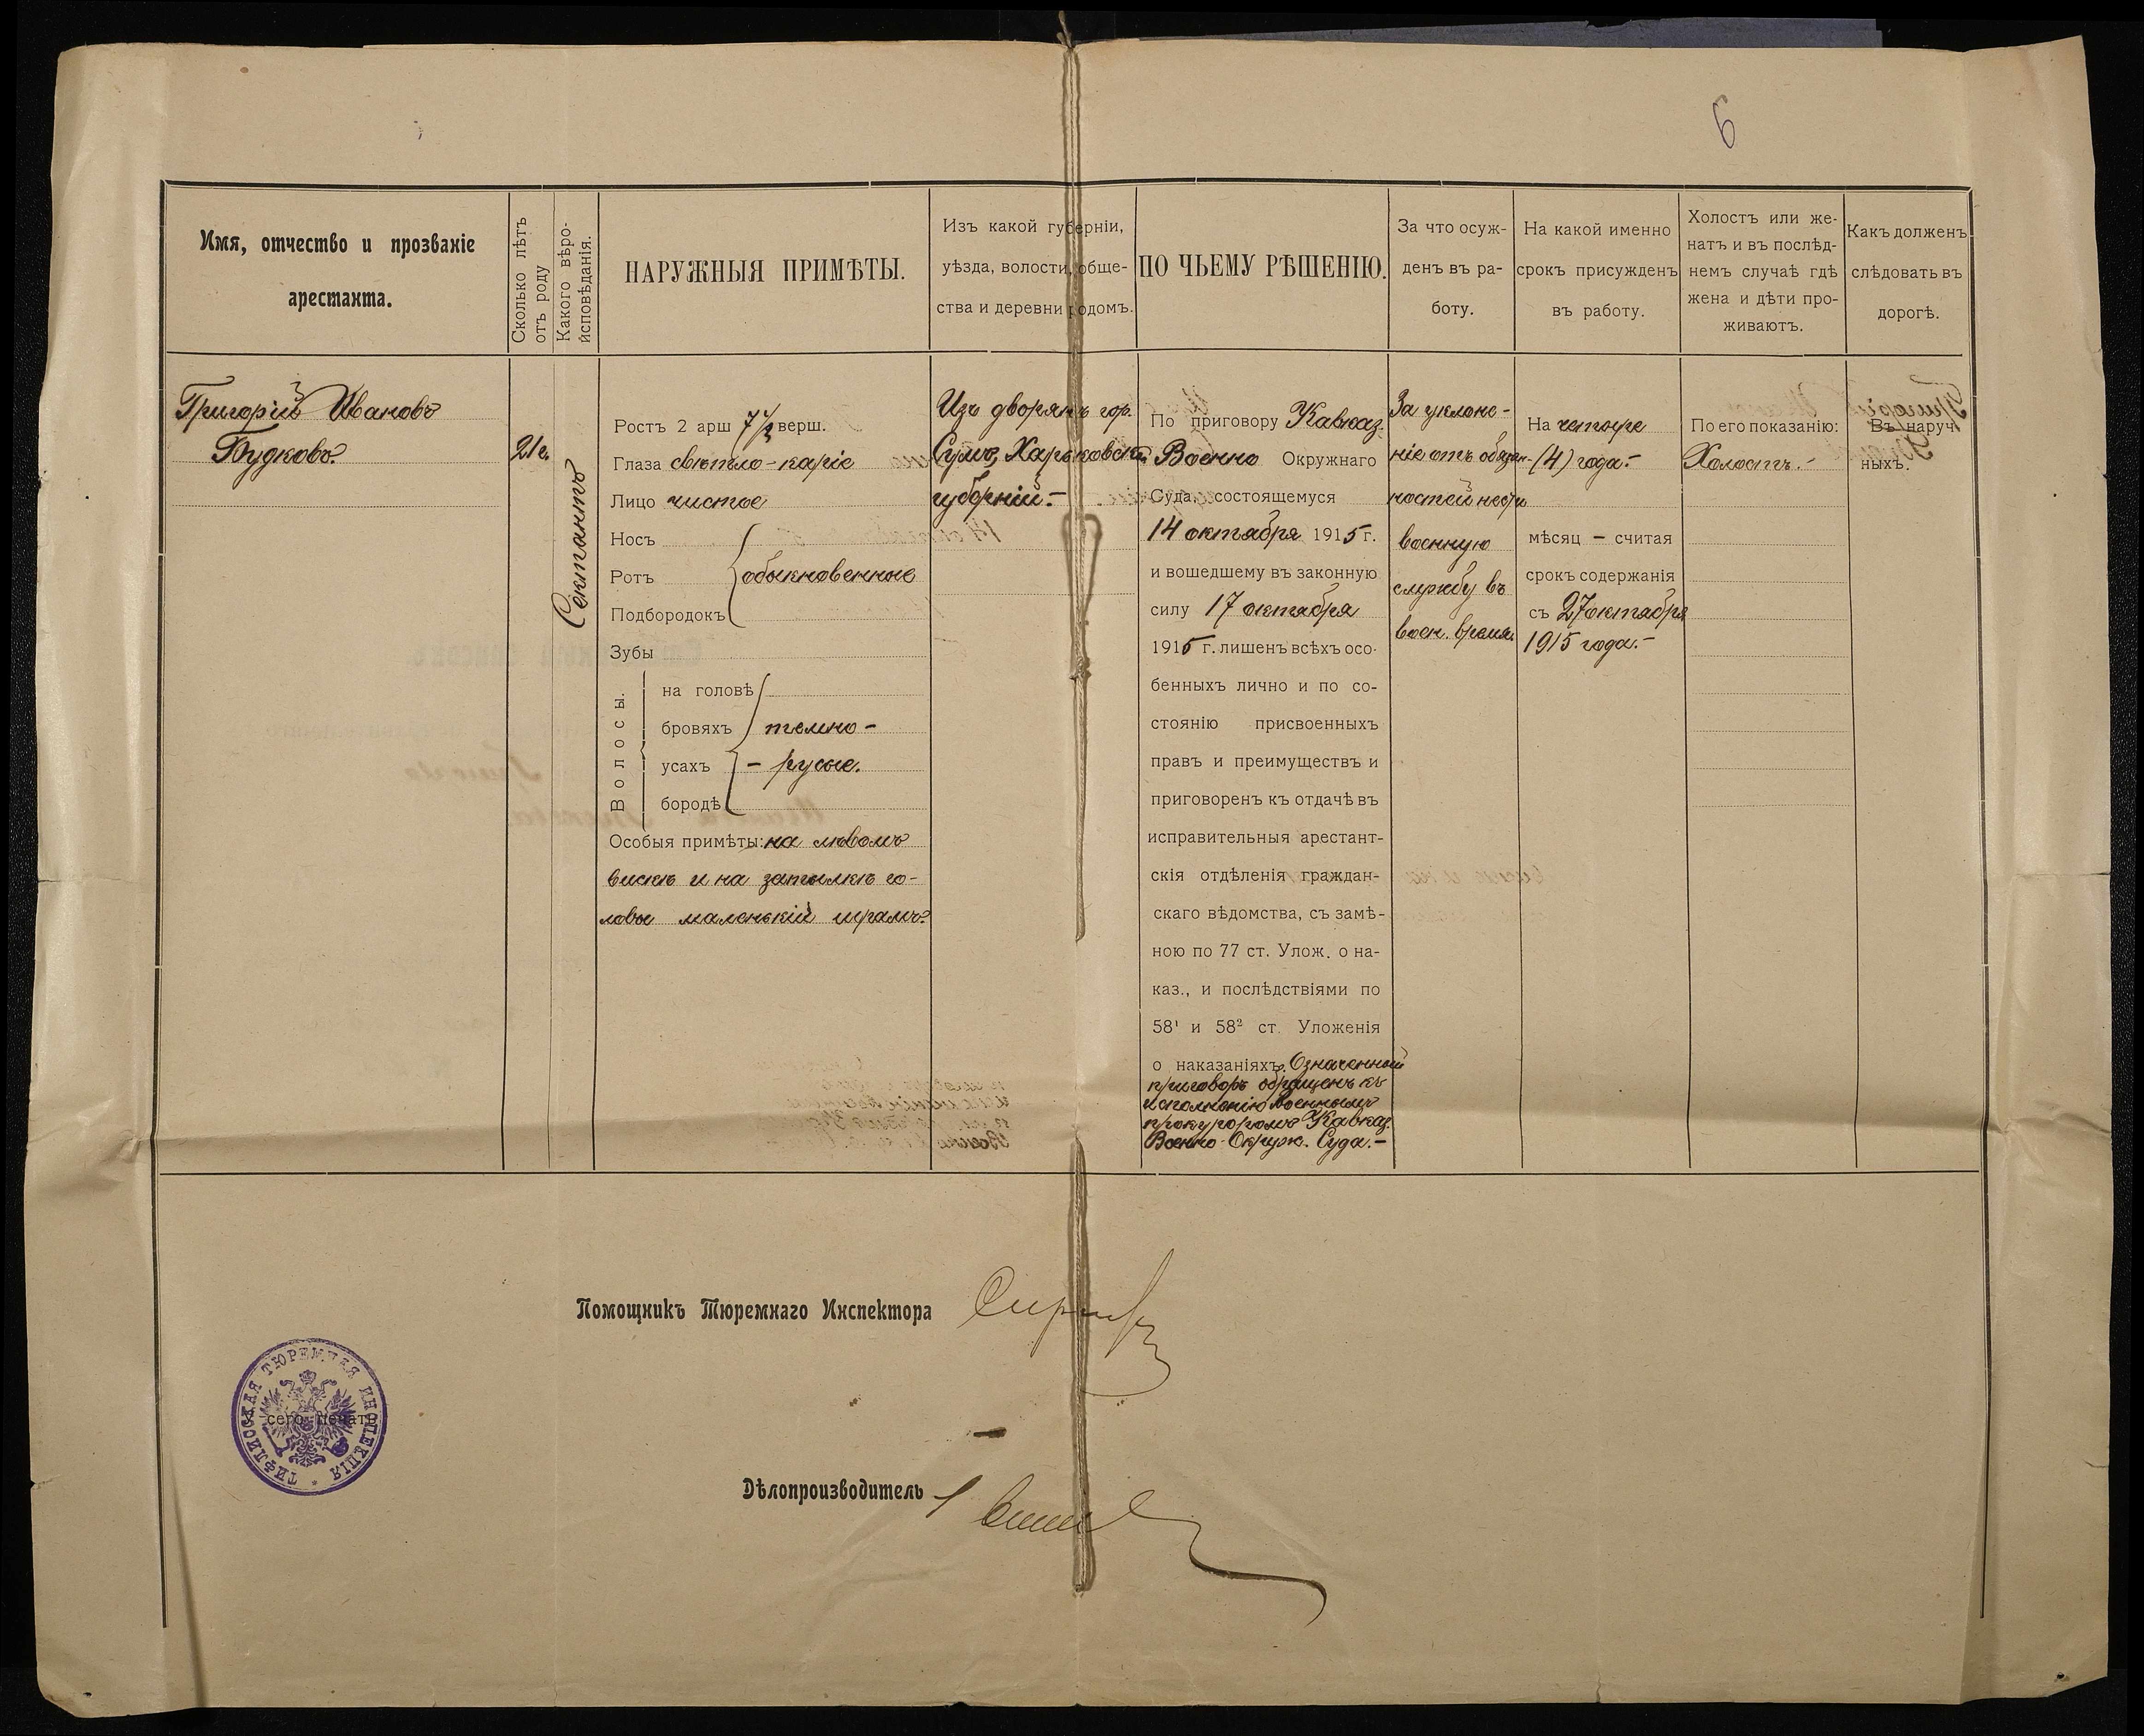 6
Имя, отчество и прозваніе
арестанта.
Сколько лѣтъ
отъ роду
Какого вѣро-
исповѣданія.
НАРУЖНЫЯ ПРИМѢТЫ.
Изъ какой губерніи,
уѣзда, волости, обще-
ства и деревни родомъ.
ПО ЧЬЕМУ РѢШЕНІЮ.
За что осуж-
денъ въ ра-
боту.
На какой именно
срокъ присужденъ
въ работу.
Холостъ или же-
натъ и въ послѣд-
немъ случаѣ гдѣ
жена и дѣти про-
живаютъ.
Какъ долженъ
слѣдовать въ
дорогѣ.
Григорій Ивановъ
Будковъ.
21 г.
Сектантъ
Ростъ 2 арш 7 1/2 верш.
Глаза свѣтло-каріе
Лицо чистое
Носъ
Ротъ обыкновенные
Подбородокъ
Зубы
Волосы.
на головѣ
бровяхъ темно-
усахъ - русые.
бородѣ
Особыя примѣты: на лѣвомъ
вискѣ и на затылкѣ го-
ловы маленькій шрамъ.
Изъ дворянъ гор.
Сумъ, Харьковской
губерніи.-
По приговору Кавказ.
Военно Окружнаго
Суда, состоящемуся
14 октября 1915 г.
и вошедшему въ законную
силу 17 октября
1915 г. лишенъ всѣхъ осо-
бенныхъ лично и по со-
стоянію присвоенныхъ
правъ и преимуществъ и
приговоренъ къ отдачѣ въ
исправительныя арестант-
скія отдѣленія граждан-
скаго вѣдомства, съ замѣ-
ною по 77 ст. Улож. о на-
каз., и послѣдствіями по
58¹ и 58² ст. Уложенія
о наказаніяхъ. Означенный
приговоръ обращенъ къ
исполненію Военнымъ
прокуроромъ Кавказ.
Военно-Окруж. Суда.-
За уклоне-
ніе отъ обязан-
ностей нести
военную
службу въ
воен. время.
На четыре
(4) года.-
мѣсяц - считая
срокъ содержанія
съ 27 октября
1915 года.-
По его показанію:
Холостъ.-
Въ наруч
ныхъ.
Помощникъ Тюремнаго Инспектора
ТИФЛИССКАЯ ТЮРЕМНАЯ ИНСПЕКЦІЯ *
сего печать
Дѣлопроизводитель